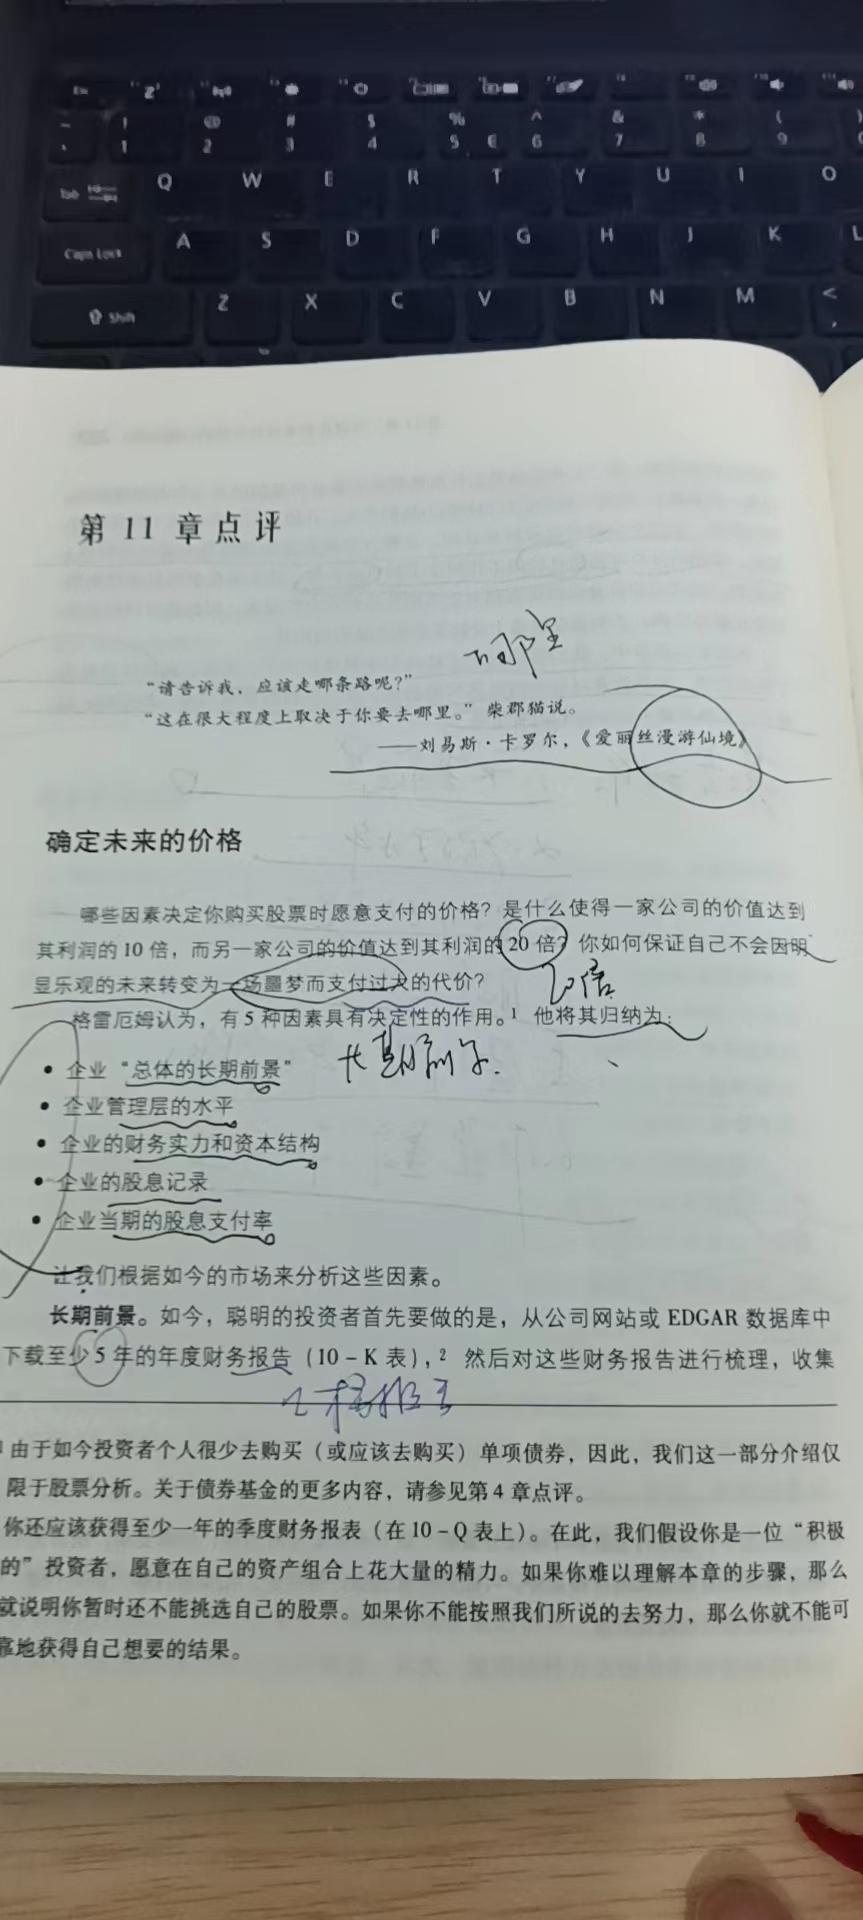 Z
! @ # $ % ^ & * (
1 2 3 4 5 € 6 7 8 9
Tab Q W E R T Y U I O
Caps Lock A S D F G H J K L
Shift Z X C V B N M <
,
第 11 章点评
哪里
“请告诉我，应该走哪条路呢？”
“这在很大程度上取决于你要去哪里。”柴郡猫说。
——刘易斯·卡罗尔，《爱丽丝漫游仙境》
确定未来的价格
哪些因素决定你购买股票时愿意支付的价格？是什么使得一家公司的价值达到
其利润的 10 倍，而另一家公司的价值达到其利润的 20 倍？你如何保证自己不会因明
显乐观的未来转变为一场噩梦而支付过大的代价？
20倍
格雷厄姆认为，有 5 种因素具有决定性的作用。1 他将其归纳为：
• 企业“总体的长期前景”
长期
• 企业管理层的水平
• 企业的财务实力和资本结构
• 企业的股息记录
• 企业当期的股息支付率
让我们根据如今的市场来分析这些因素。
长期前景。如今，聪明的投资者首先要做的是，从公司网站或 EDGAR 数据库中
下载至少 5 年的年度财务报告（10－K 表），2 然后对这些财务报告进行梳理，收集
由于如今投资者个人很少去购买（或应该去购买）单项债券，因此，我们这一部分介绍仅
限于股票分析。关于债券基金的更多内容，请参见第 4 章点评。
你还应该获得至少一年的季度财务报表（在 10－Q 表上）。在此，我们假设你是一位“积极
的”投资者，愿意在自己的资产组合上花大量的精力。如果你难以理解本章的步骤，那么
就说明你暂时还不能挑选自己的股票。如果你不能按照我们所说的去努力，那么你就不能可
靠地获得自己想要的结果。